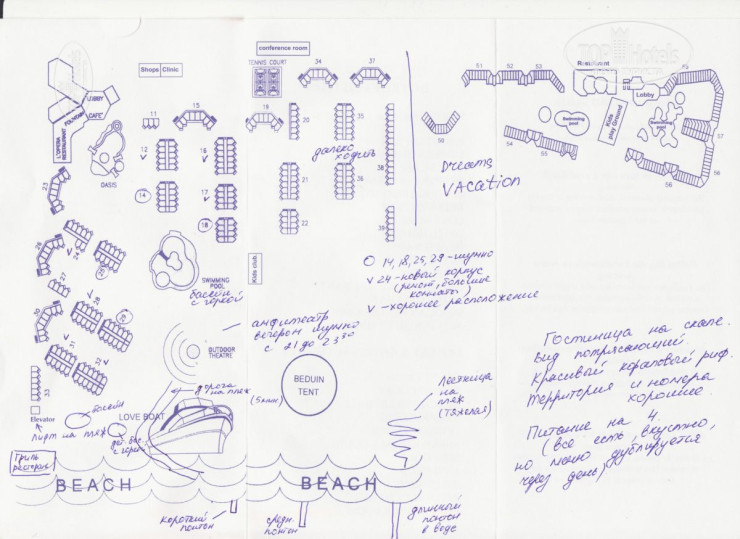 conference room
TENNIS COURT
Shops Clinic
LOBBY
FOUNTAIN
CAFE'
L'OPERA
RESTAURANT
OASIS
11
15
12
16
14
17
18
19
20
34
37
35
38
21
36
22
39
далеко
ходить
23
26
24
27
28
30
31
32
33
SWIMMING
POOL
бассейн
с горкой
Kids club
51
52
53
Restaurant
TOP Hotels
Lobby
Swimming
pool
Kids
play Ground
Swimming
pool
50
54
55
57
56
58
Dreams
VACation
О 14, 18, 25, 29 - шумно
v 24 - новый корпус
(ремонт, большие
комнаты)
v - хорошее расположение
амфитеатр
вечером шумно
с 21 до 23 30
OUTDOOR
THEATRE
BEDUIN
TENT
дорога
на пляж
(5 мин.)
Лестница
на
пляж
(тяжелая)
Elevator
лифт на пляж
бассейн
LOVE BOAT
дет. бас.
с горкой
Гриль
ресторан
BEACH
BEACH
короткий
понтон
средн.
понтон
длинный
понтон
в воде
Гостиница на скале.
Вид потрясающий.
Красивый коралловый риф.
Территория и номера
хорошие.
Питание на 4.
(все есть, вкусно,
но меню дублируется
через день)